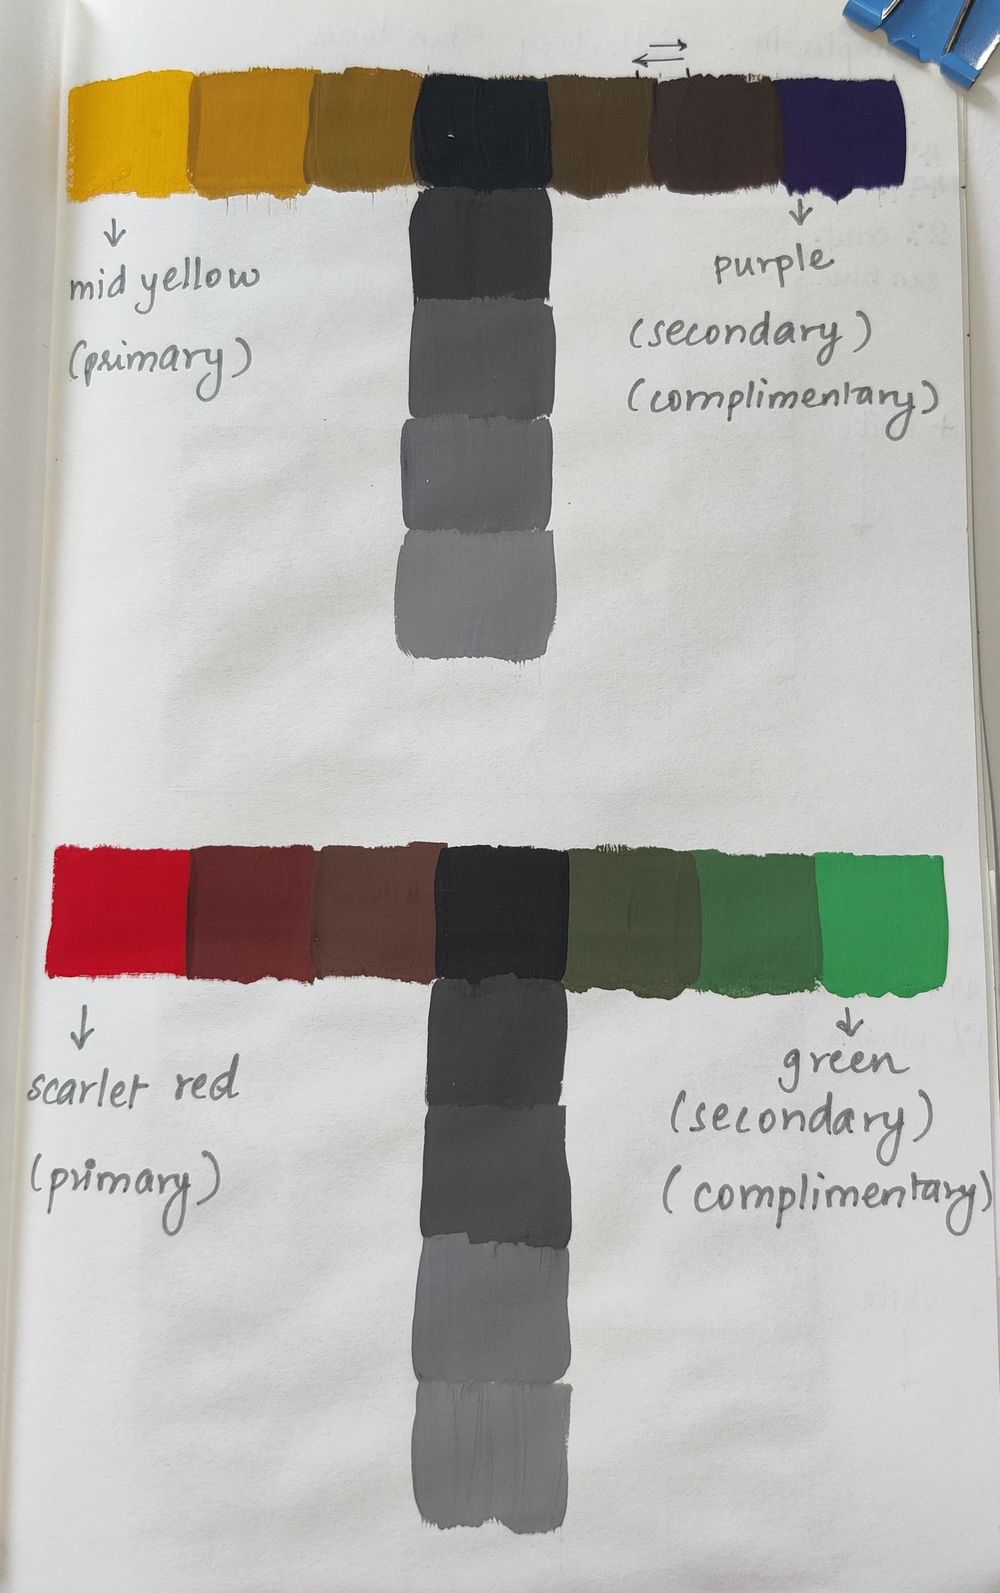 mid yellow
(primary)
purple
(secondary)
(complimentary)
scarlet red
(primary)
green
(secondary)
(complimentary)